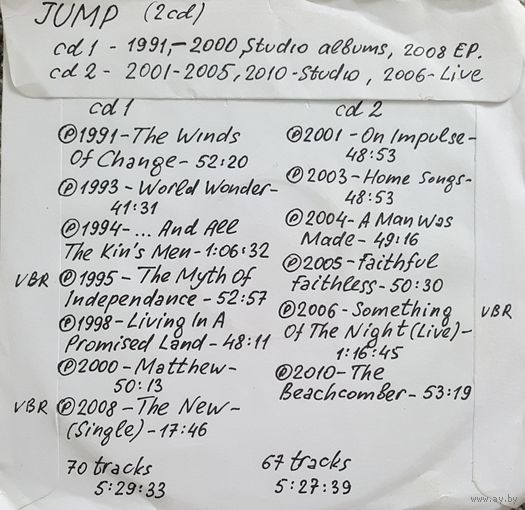 JUMP (2cd)
cd 1 - 1991,-2000, Studio albums, 2008 EP.
cd 2 - 2001-2005, 2010-Studio, 2006-Live
cd 1
Ⓟ1991-The Winds
Of Change-52:20
Ⓟ1993-World Wonder-
41:31
Ⓟ1994-... And All
The Kin's Men-1:06:32
VBR Ⓟ1995-The Myth Of
Independance-52:57
Ⓟ1998-Living In A
Promised Land-48:11
Ⓟ2000-Matthew-
50:13
VBR Ⓟ2008-The New-
(Single)-17:46
70 tracks
5:29:33
cd 2
Ⓟ2001-On Impulse-
48:53
Ⓟ2003-Home Songs-
48:53
Ⓟ2004-A Man Was
Made-49:16
Ⓟ2005-Faithful
faithless-50:30
Ⓟ2006-Something VBR
Of The Night (Live)-
1:16:45
Ⓟ2010-The
Beachcomber-53:19
67 tracks
5:27:39
www.ay.by